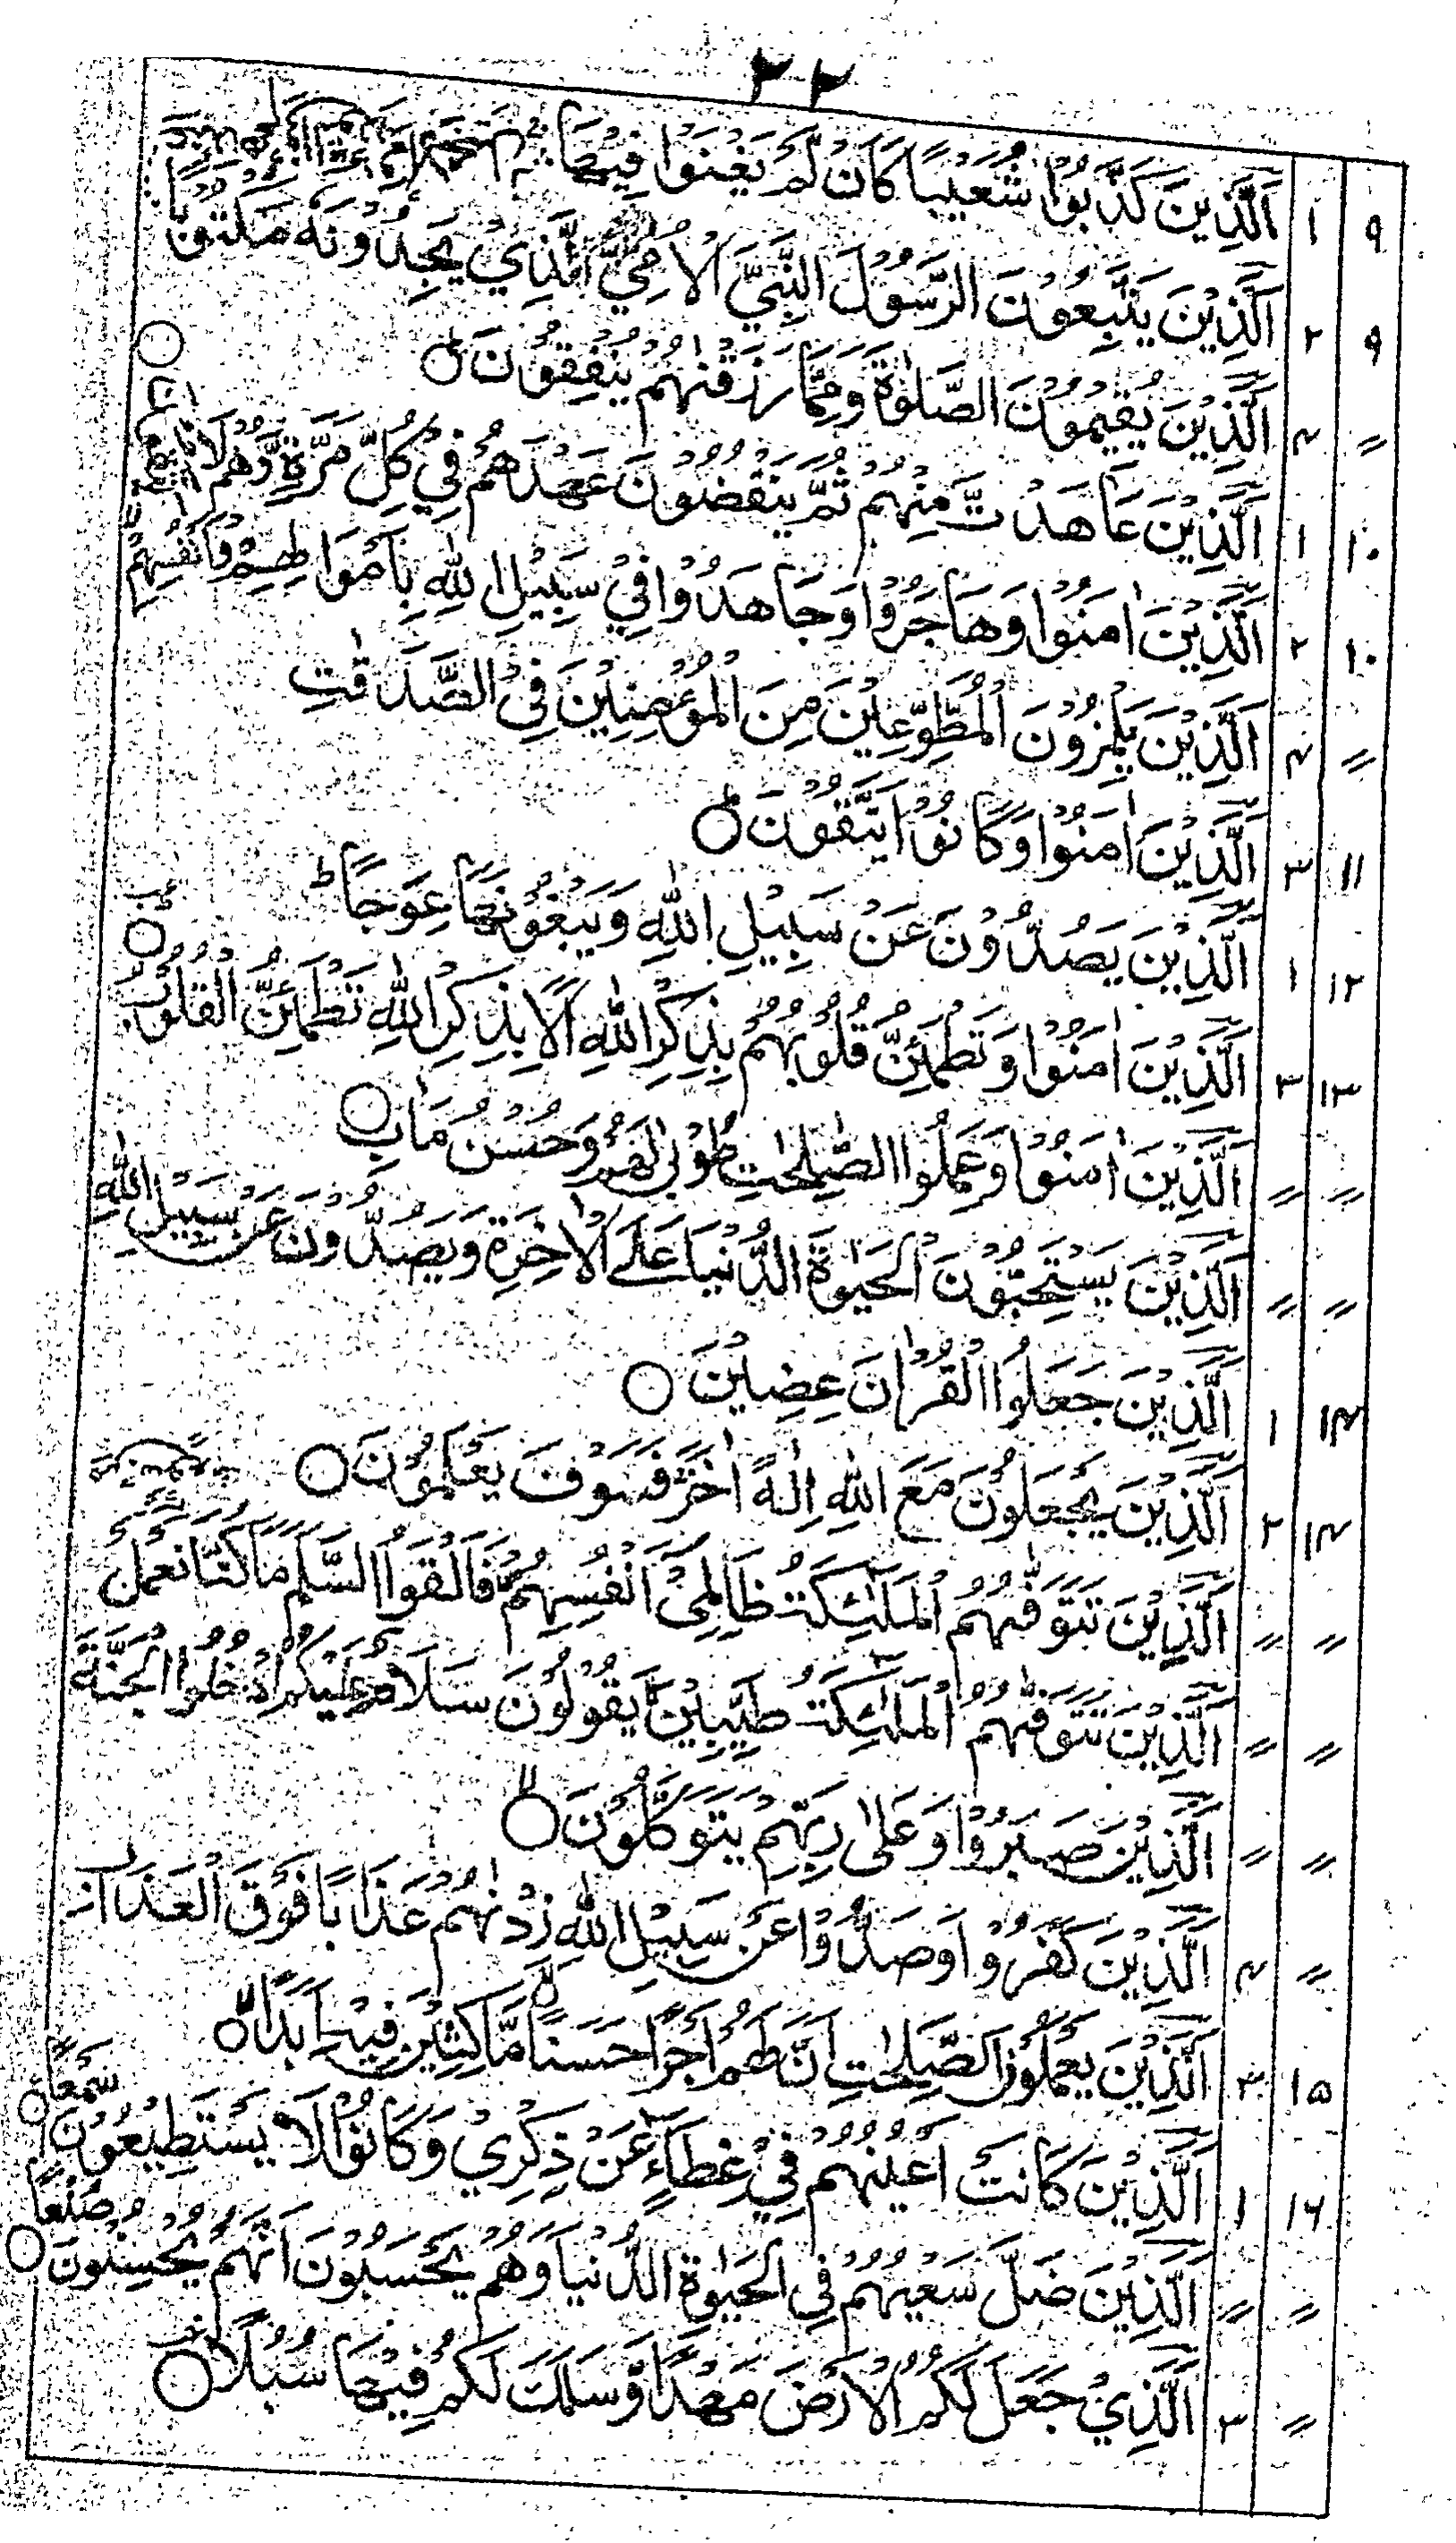 ٣٢
٩ ١ اَلَّذِيْنَ كَذَّبُوْا شُعَيْبًا كَاَنْ لَّمْ يَغْنَوْا فِيْهَا
٩ ٢ اَلَّذِيْنَ يَتَّبِعُوْنَ الرَّسُوْلَ النَّبِيَّ الْاُمِّيَّ الَّذِيْ يَجِدُوْنَهٗ مَكْتُوْبًا
〃 ٤ اَلَّذِيْنَ يُقِيْمُوْنَ الصَّلٰوةَ وَمِمَّا رَزَقْنٰهُمْ يُنْفِقُوْنَ ○
١٠ ١ اَلَّذِيْنَ عَاهَدْتَّ مِنْهُمْ ثُمَّ يَنْقُضُوْنَ عَهْدَهُمْ فِيْ كُلِّ مَرَّةٍ وَّهُمْ لَا
١٠ ٢ اَلَّذِيْنَ اٰمَنُوْا وَهَاجَرُوْا وَجَاهَدُوْا فِيْ سَبِيْلِ اللّٰهِ بِاَمْوَالِهِمْ وَاَنْفُسِهِمْ
〃 ٤ اَلَّذِيْنَ يَلْمِزُوْنَ الْمُطَّوِّعِيْنَ مِنَ الْمُؤْمِنِيْنَ فِى الصَّدَقٰتِ
١١ ٣ اَلَّذِيْنَ اٰمَنُوْا وَكَانُوْا يَتَّقُوْنَ ○
١٢ ١ اَلَّذِيْنَ يَصُدُّوْنَ عَنْ سَبِيْلِ اللّٰهِ وَيَبْغُوْنَهَا عِوَجًا ط
١٣ ٣ اَلَّذِيْنَ اٰمَنُوْا وَتَطْمَئِنُّ قُلُوْبُهُمْ بِذِكْرِ اللّٰهِ اَلَا بِذِكْرِ اللّٰهِ تَطْمَئِنُّ الْقُلُوْبُ ○
〃 〃 اَلَّذِيْنَ اٰمَنُوْا وَعَمِلُوا الصّٰلِحٰتِ طُوْبٰى لَهُمْ وَحُسْنُ مَاٰبٍ ○
〃 〃 اَلَّذِيْنَ يَسْتَحِبُّوْنَ الْحَيٰوةَ الدُّنْيَا عَلَى الْاٰخِرَةِ وَيَصُدُّوْنَ عَنْ سَبِيْلِ اللّٰهِ
١٤ ١ اَلَّذِيْنَ جَعَلُوا الْقُرْاٰنَ عِضِيْنَ ○
١٤ ٢ اَلَّذِيْنَ يَجْعَلُوْنَ مَعَ اللّٰهِ اِلٰهًا اٰخَرَ فَسَوْفَ يَعْلَمُوْنَ ○
〃 〃 اَلَّذِيْنَ تَتَوَفّٰهُمُ الْمَلٰٓئِكَةُ ظَالِمِيْٓ اَنْفُسِهِمْ فَاَلْقَوُا السَّلَمَ مَا كُنَّا نَعْمَلُ
〃 〃 اَلَّذِيْنَ تَتَوَفّٰهُمُ الْمَلٰٓئِكَةُ طَيِّبِيْنَ يَقُوْلُوْنَ سَلَامٌ عَلَيْكُمُ ادْخُلُوا الْجَنَّةَ
〃 〃 اَلَّذِيْنَ صَبَرُوْا وَعَلٰى رَبِّهِمْ يَتَوَكَّلُوْنَ ○
〃 ٤ اَلَّذِيْنَ كَفَرُوْا وَصَدُّوْا عَنْ سَبِيْلِ اللّٰهِ زِدْنٰهُمْ عَذَابًا فَوْقَ الْعَذَابِ
١٥ ٣ اَلَّذِيْنَ يَعْمَلُوْنَ الصّٰلِحٰتِ اَنَّ لَهُمْ اَجْرًا حَسَنًا مَّاكِثِيْنَ فِيْهِ اَبَدًا
١٦ ١ اَلَّذِيْنَ كَانَتْ اَعْيُنُهُمْ فِيْ غِطَآءٍ عَنْ ذِكْرِيْ وَكَانُوْا لَا يَسْتَطِيْعُوْنَ سَمْعًا ○
〃 〃 اَلَّذِيْنَ ضَلَّ سَعْيُهُمْ فِى الْحَيٰوةِ الدُّنْيَا وَهُمْ يَحْسَبُوْنَ اَنَّهُمْ يُحْسِنُوْنَ صُنْعًا ○
〃 ٣ اَلَّذِيْ جَعَلَ لَكُمُ الْاَرْضَ مَهْدًا وَّسَلَكَ لَكُمْ فِيْهَا سُبُلًا ○